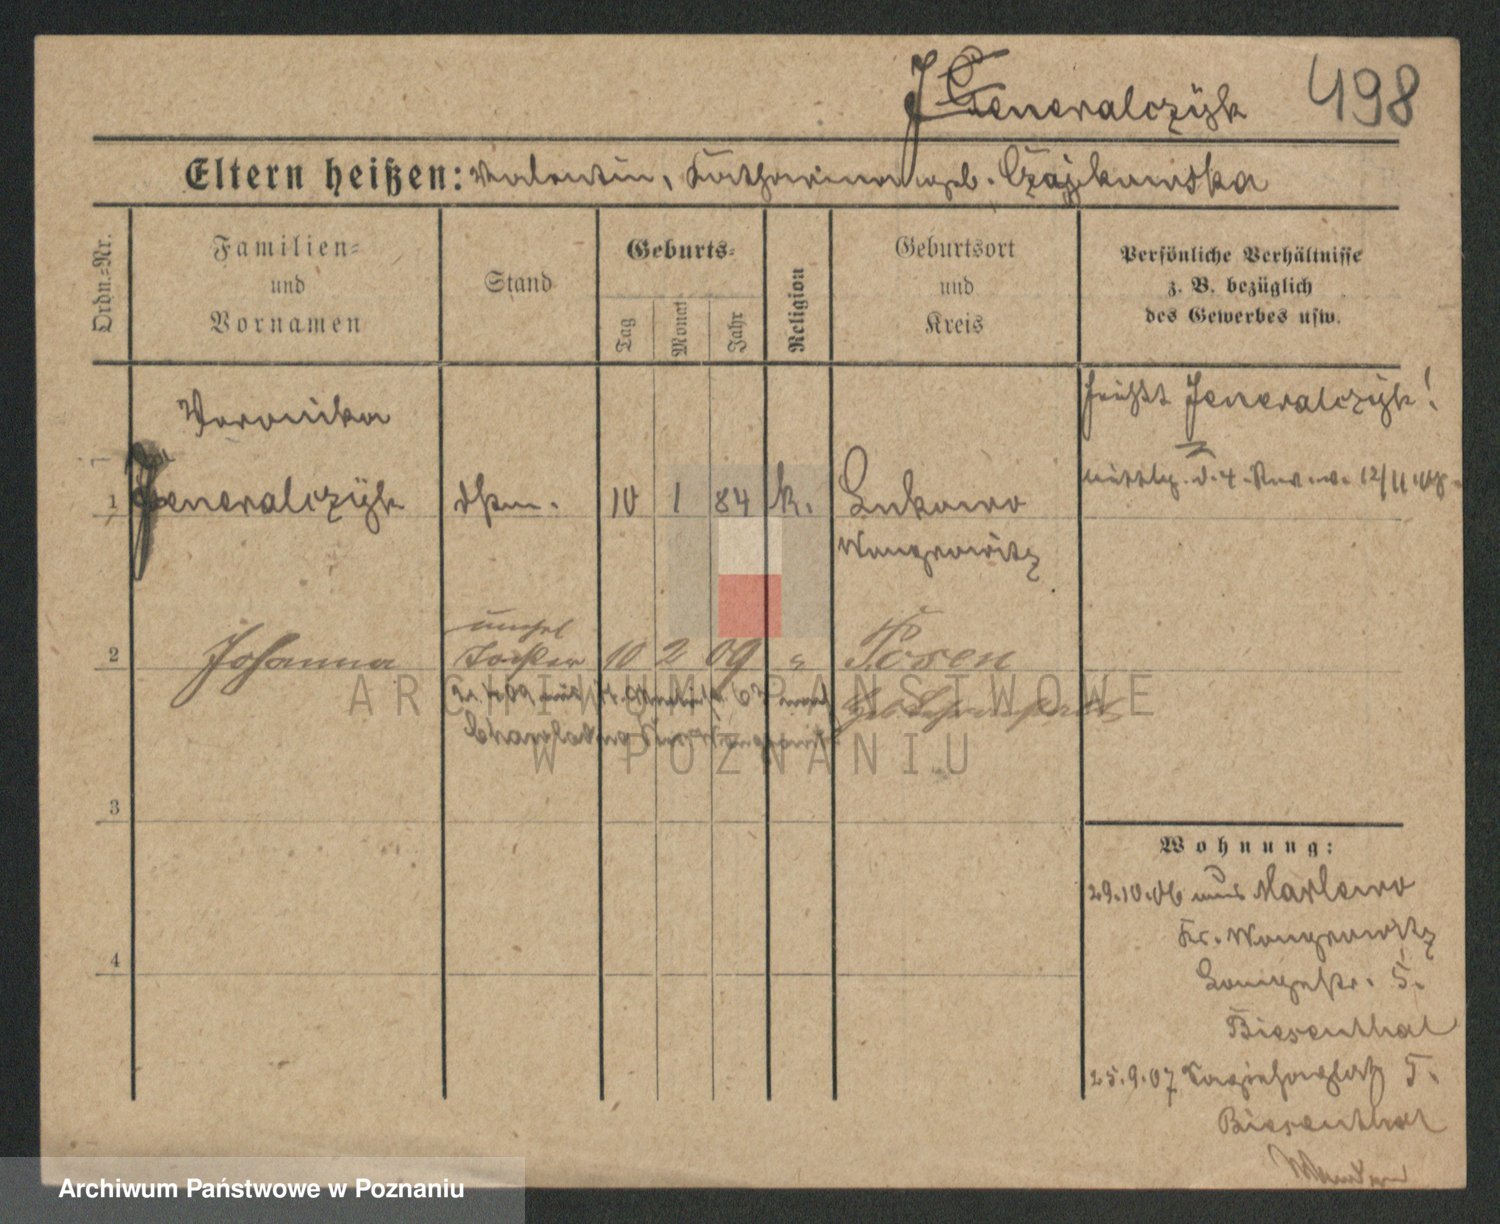 Jeneralczyk 498
Eltern heißen: Valentin, Katharina geb. Czajkowska
Ordn.-Nr.
Familien-
und
Vornamen
Stand
Geburts-
Tag
Monat
Jahr
Religion
Geburtsort
und
Kreis
Persönliche Verhältnisse
z. B. bezüglich
des Gewerbes usw.
heißt Jeneralczyk!
Veronika
1 Jeneralczyk 10 1 84 k. Lukowo
Wongrowitz
12/11.08.
unehel
2 Johanna Tochter 10 2 09 " Posen
3
4
Wohnung:
29.10.06 aus Marlewo
Kr. Wongrowitz
5.
Biesenthal
25.9.07 Sapiehaplatz 5.
Biesenthal
ARCHIWUM PAŃSTWOWE
W POZNANIU
Archiwum Państwowe w Poznaniu